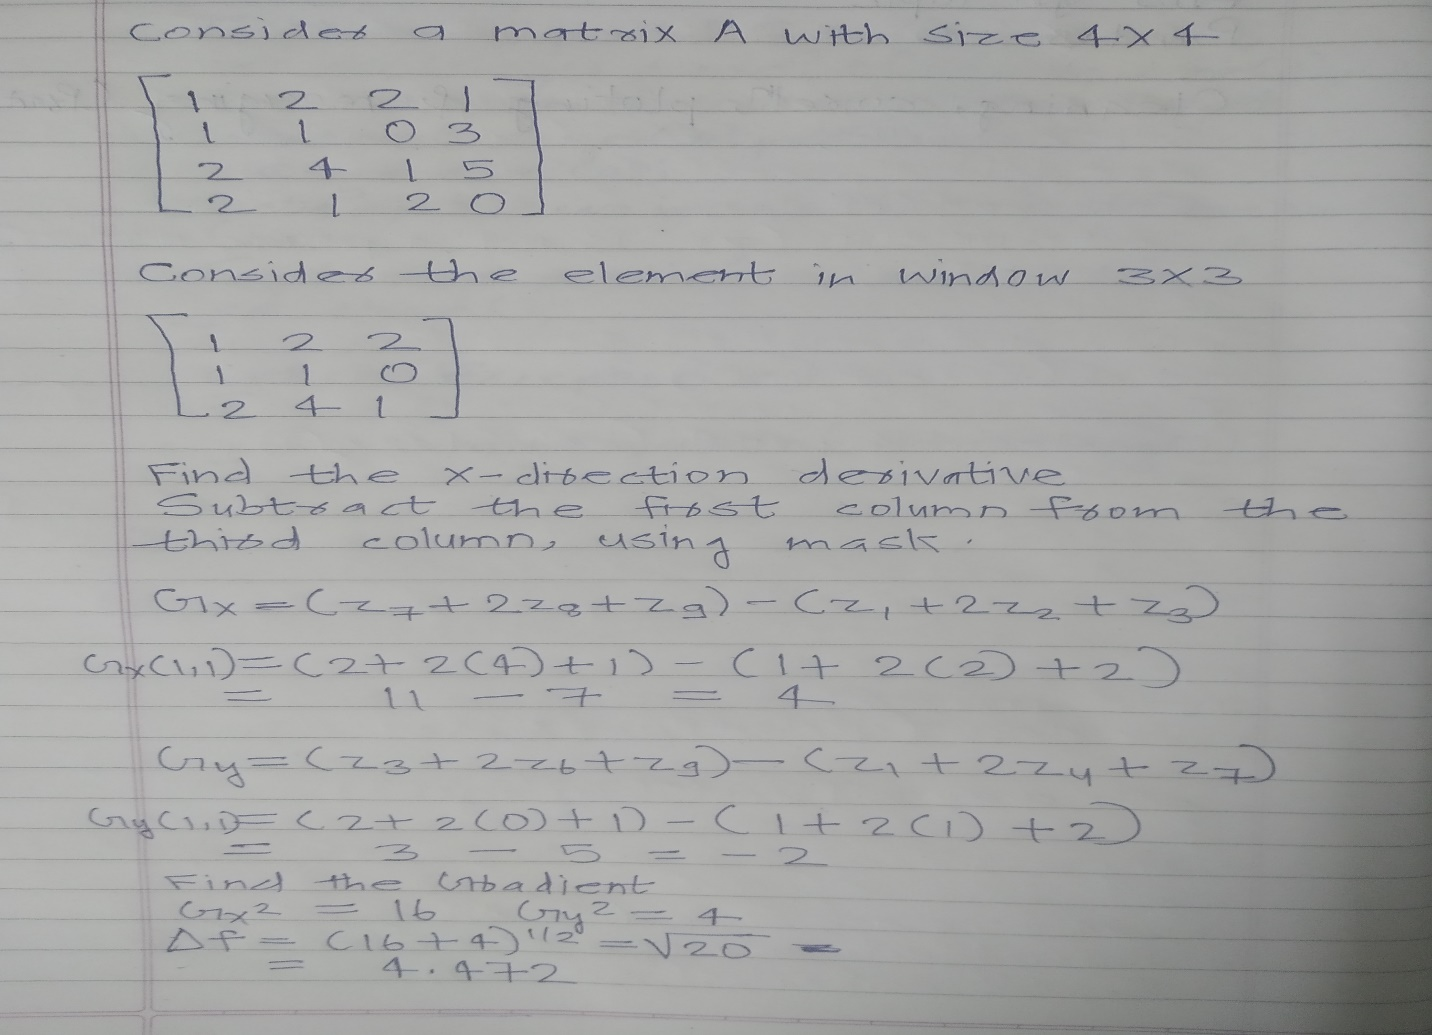 Consider a matrix A with size 4×4
1 2 2 1
1 1 0 3
2 4 1 5
2 1 2 0
Consider the element in window 3×3
1 2 2
1 1 0
2 4 1
Find the x-direction derivative
Subtract the first column from the
third column, using mask.
Gx = (z7 + 2z8 + z9) - (z1 + 2z2 + z3)
Gx(1,1) = (2 + 2(4) + 1) - (1 + 2(2) + 2)
= 11 - 7 = 4
Gy = (z3 + 2z6 + z9) - (z1 + 2z4 + z7)
Gy(1,1) = (2 + 2(0) + 1) - (1 + 2(1) + 2)
= 3 - 5 = -2
Find the Gradient
Gx2 = 16 Gy2 = 4
Δf = (16 + 4)^1/2 = √20 =
= 4.472